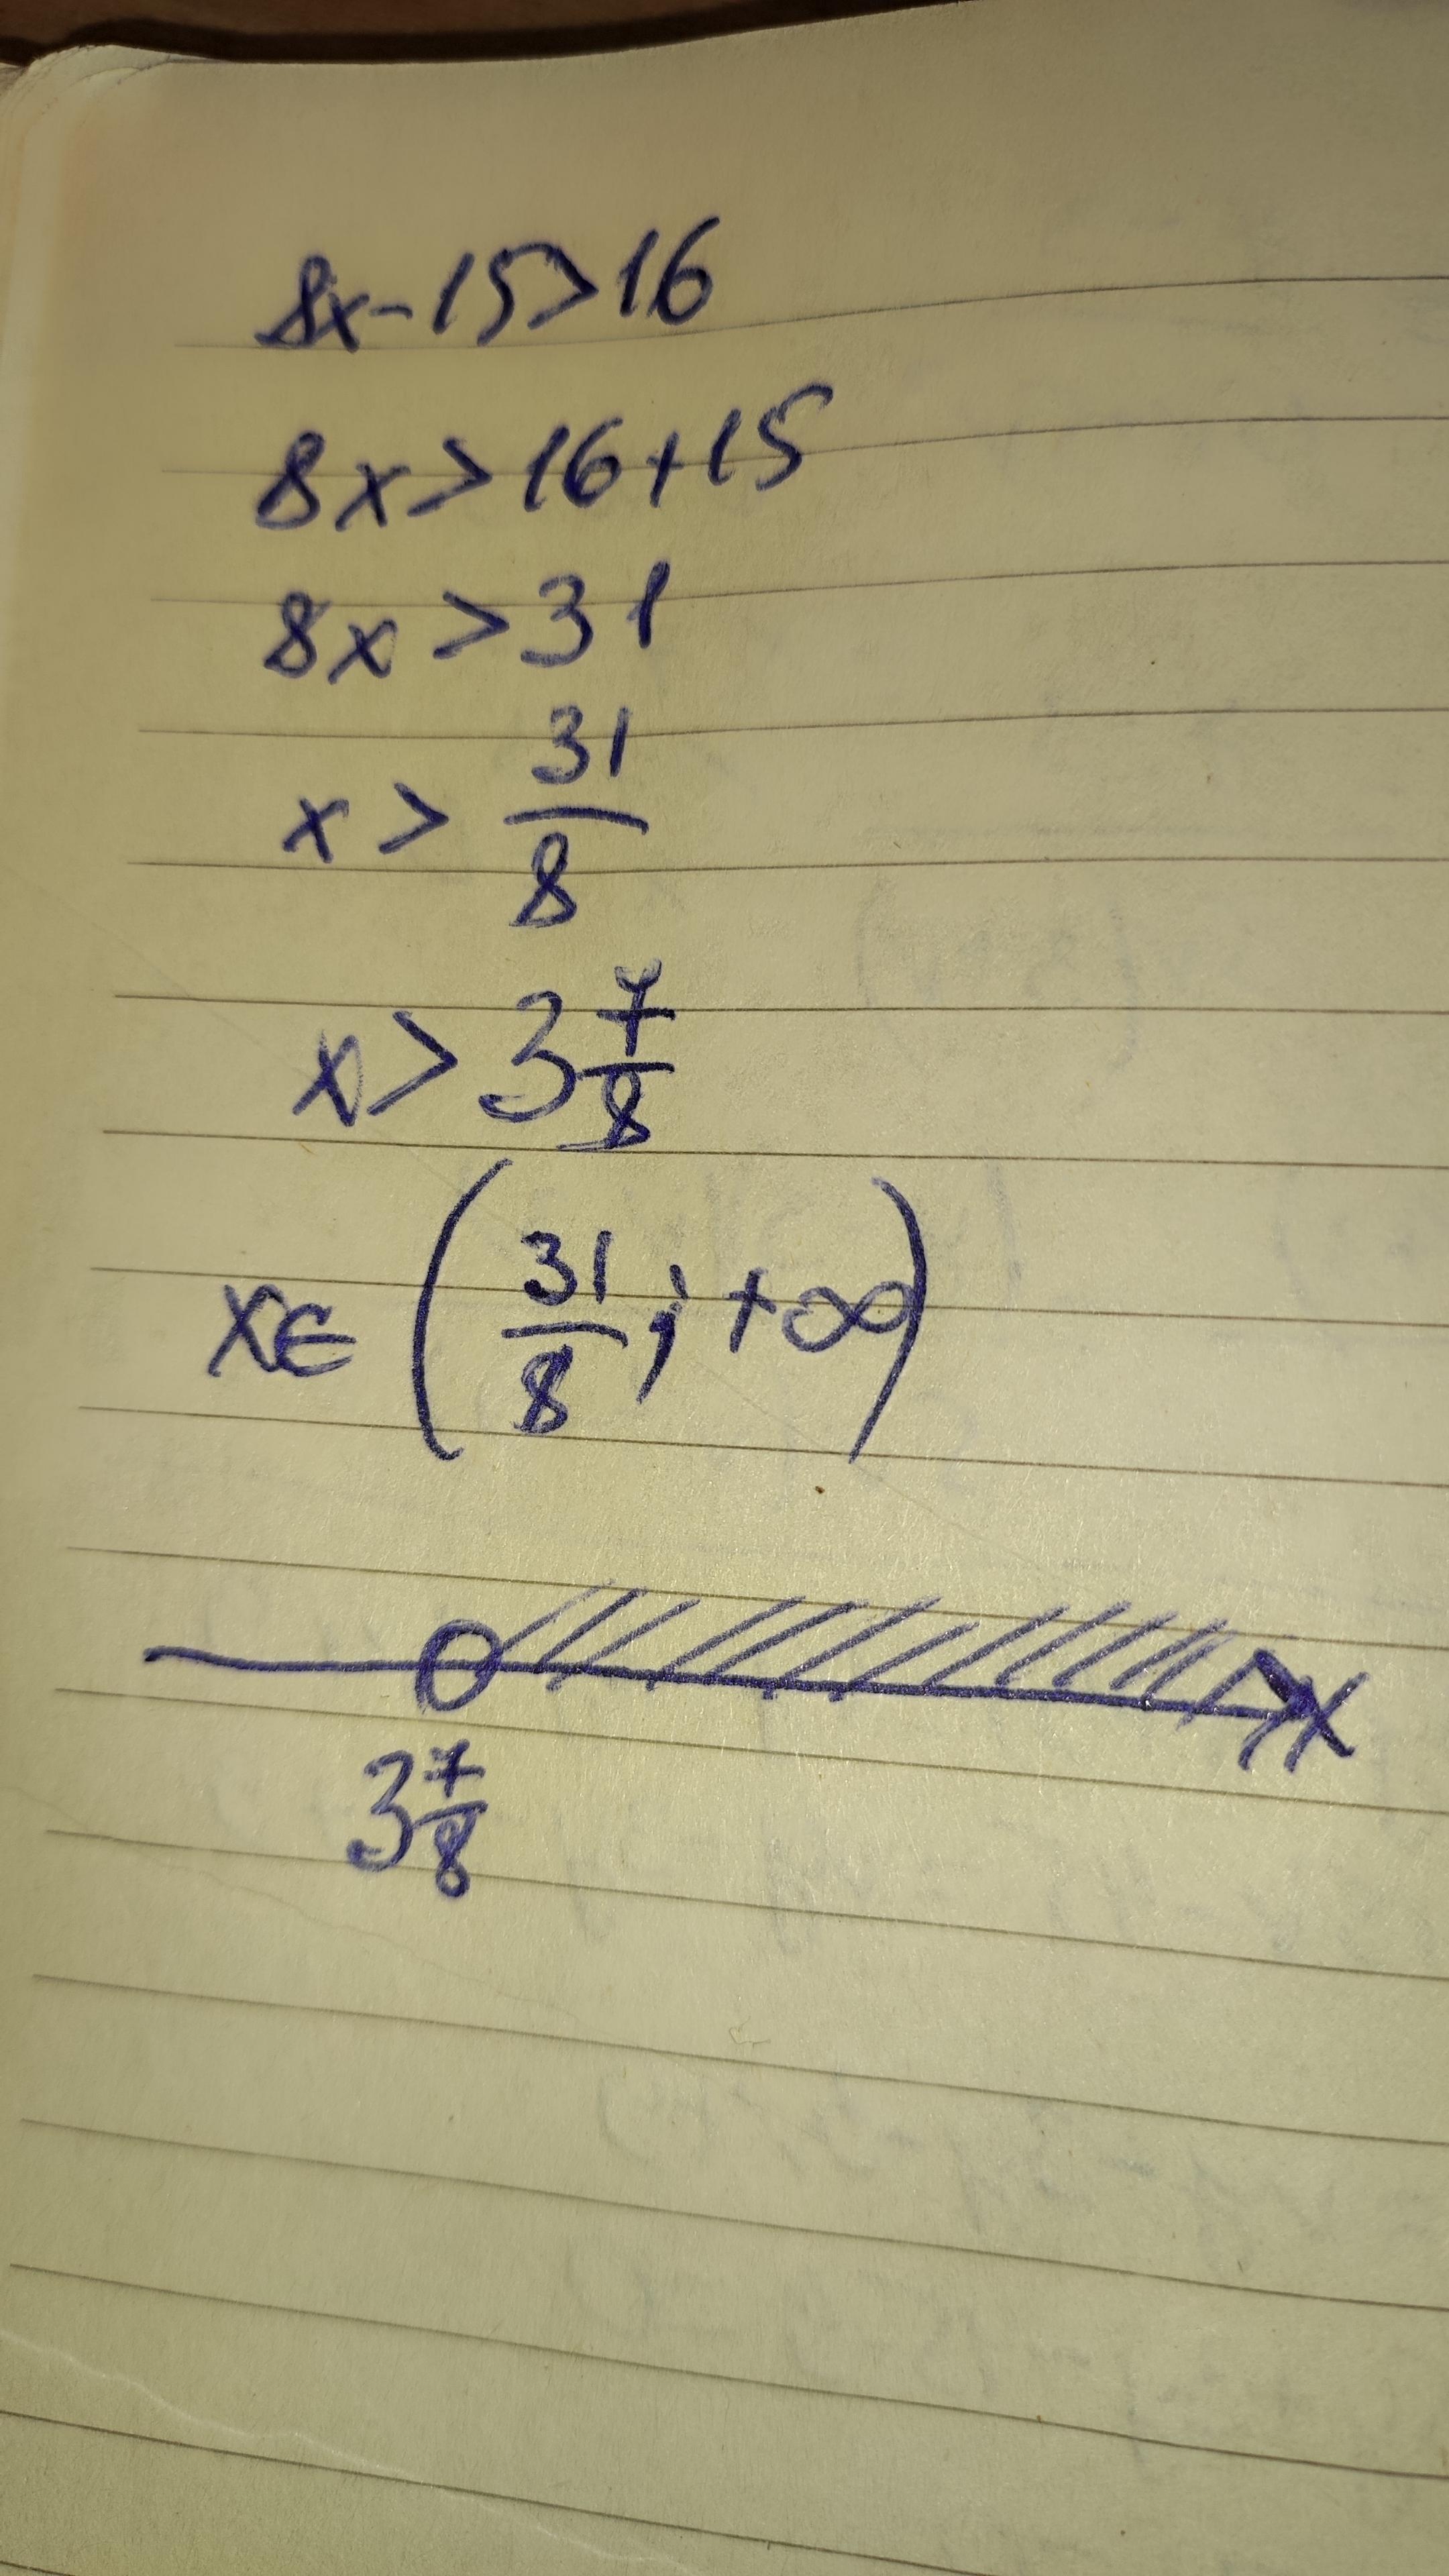 8x-15>16
8x>16+15
8x>31
x> 31/8
x>3 7/8
x∈(31/8; +∞)
x
3 7/8